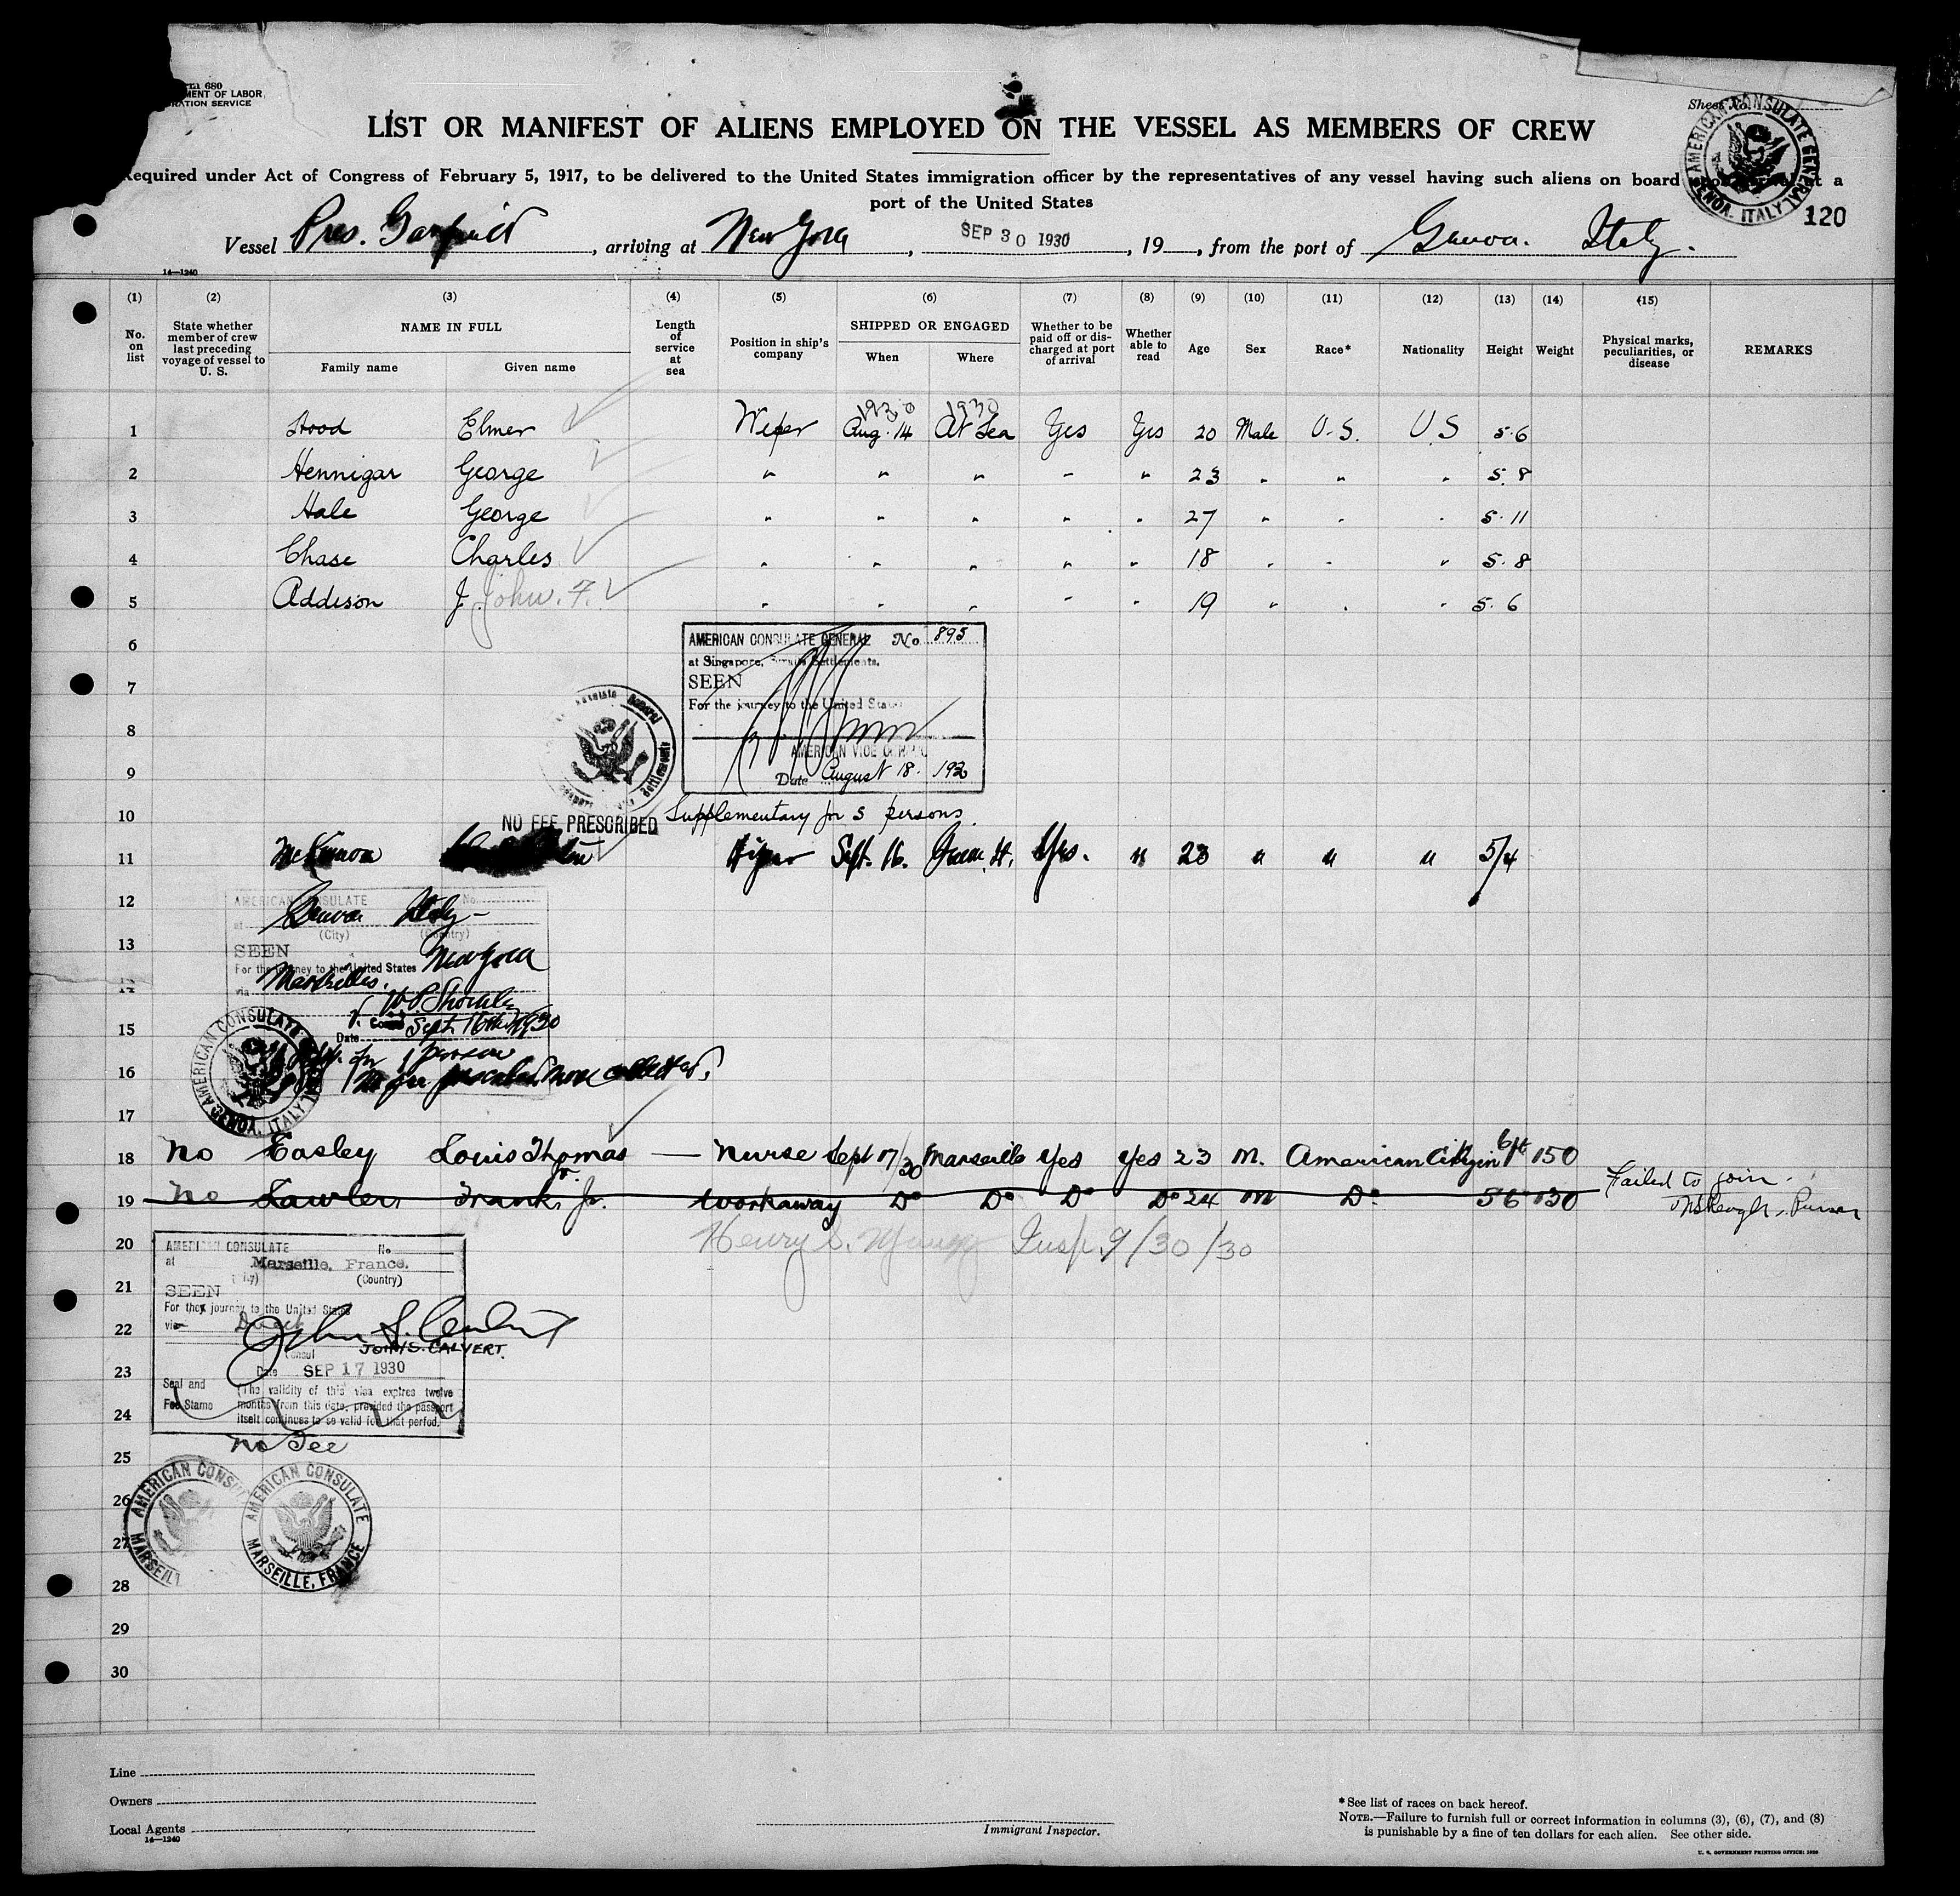 680
MENT OF LABOR
RATION SERVICE
Sheet No.
LIST OR MANIFEST OF ALIENS EMPLOYED ON THE VESSEL AS MEMBERS OF CREW
Required under Act of Congress of February 5, 1917, to be delivered to the United States immigration officer by the representatives of any vessel having such aliens on board a
port of the United States
AMERICAN CONSULATE GENERAL GENOA, ITALY
120
Vessel Pres. Garfield, arriving at New York, SEP 30 1930, 19, from the port of Genoa. Italy.
14—1240
(1) (2) (3) (4) (5) (6) (7) (8) (9) (10) (11) (12) (13) (14) (15)
No. on list
State whether member of crew last preceding voyage of vessel to U. S.
NAME IN FULL
Family name Given name
Length of service at sea
Position in ship's company
SHIPPED OR ENGAGED
When Where
Whether to be paid off or discharged at port of arrival
Whether able to read
Age Sex Race* Nationality Height Weight
Physical marks, peculiarities, or disease
REMARKS
1930 1930
1 Hood Elmer Wiper Aug. 14 At Sea Yes Yes 20 Male U.S. U.S 5.6
2 Hennigar George " " " " " 23 " " " 5.8
3 Hale George " " " " " 27 " " " 5.11
4 Chase Charles " " " " " 18 " " " 5.8
5 Addison J. John. F. " " " " " 19 " " " 5.6
6
7
8
9
10
AMERICAN CONSULATE GENERAL No 895
at Singapore, Straits Settlements.
SEEN
For the journey to the United States
AMERICAN VICE CONSUL
Date August 18. 1930
Supplementary for 5 persons.
NO FEE PRESCRIBED
11 McKinnon Wiper Sept. 16. Yes. " 23 " " " 5/4
12
13
14
15
16
17
AMERICAN CONSULATE No.
at Genoa Italy
(City) (Country)
SEEN
For the journey to the United States New York
via Marseilles.
Date Sept. 16th 1930
1 person
No fee prescribed none collected.
AMERICAN CONSULATE GENOA, ITALY
18 No Easley Louis Thomas Nurse Sept 17/30 Marseille Yes Yes 23 M. American Citizen 6ft 150
19 No Lawler, Frank, Jr. Workaway Do Do Do Do 24 M Do 56 130
Failed to join.
Purser
20 Henry Insp. 9/30/30
21
22
23
24
25
26
27
28
29
30
AMERICAN CONSULATE No
at Marseille, France.
(City) (Country)
SEEN
For the journey to the United States
via Direct
John S. Calvert
JOHN S. CALVERT.
Consul
Date SEP 17 1930
Seal and Fee Stamp
(The validity of this visa expires twelve
months from this date, provided the passport
itself continues to be valid for that period.
No Fee
AMERICAN CONSU MARSEIL
AMERICAN CONSULATE MARSEILLE, FRANCE
Line
Owners
Local Agents
14—1240
Immigrant Inspector.
*See list of races on back hereof.
NOTE.—Failure to furnish full or correct information in columns (3), (6), (7), and (8)
is punishable by a fine of ten dollars for each alien. See other side.
U. S. GOVERNMENT PRINTING OFFICE: